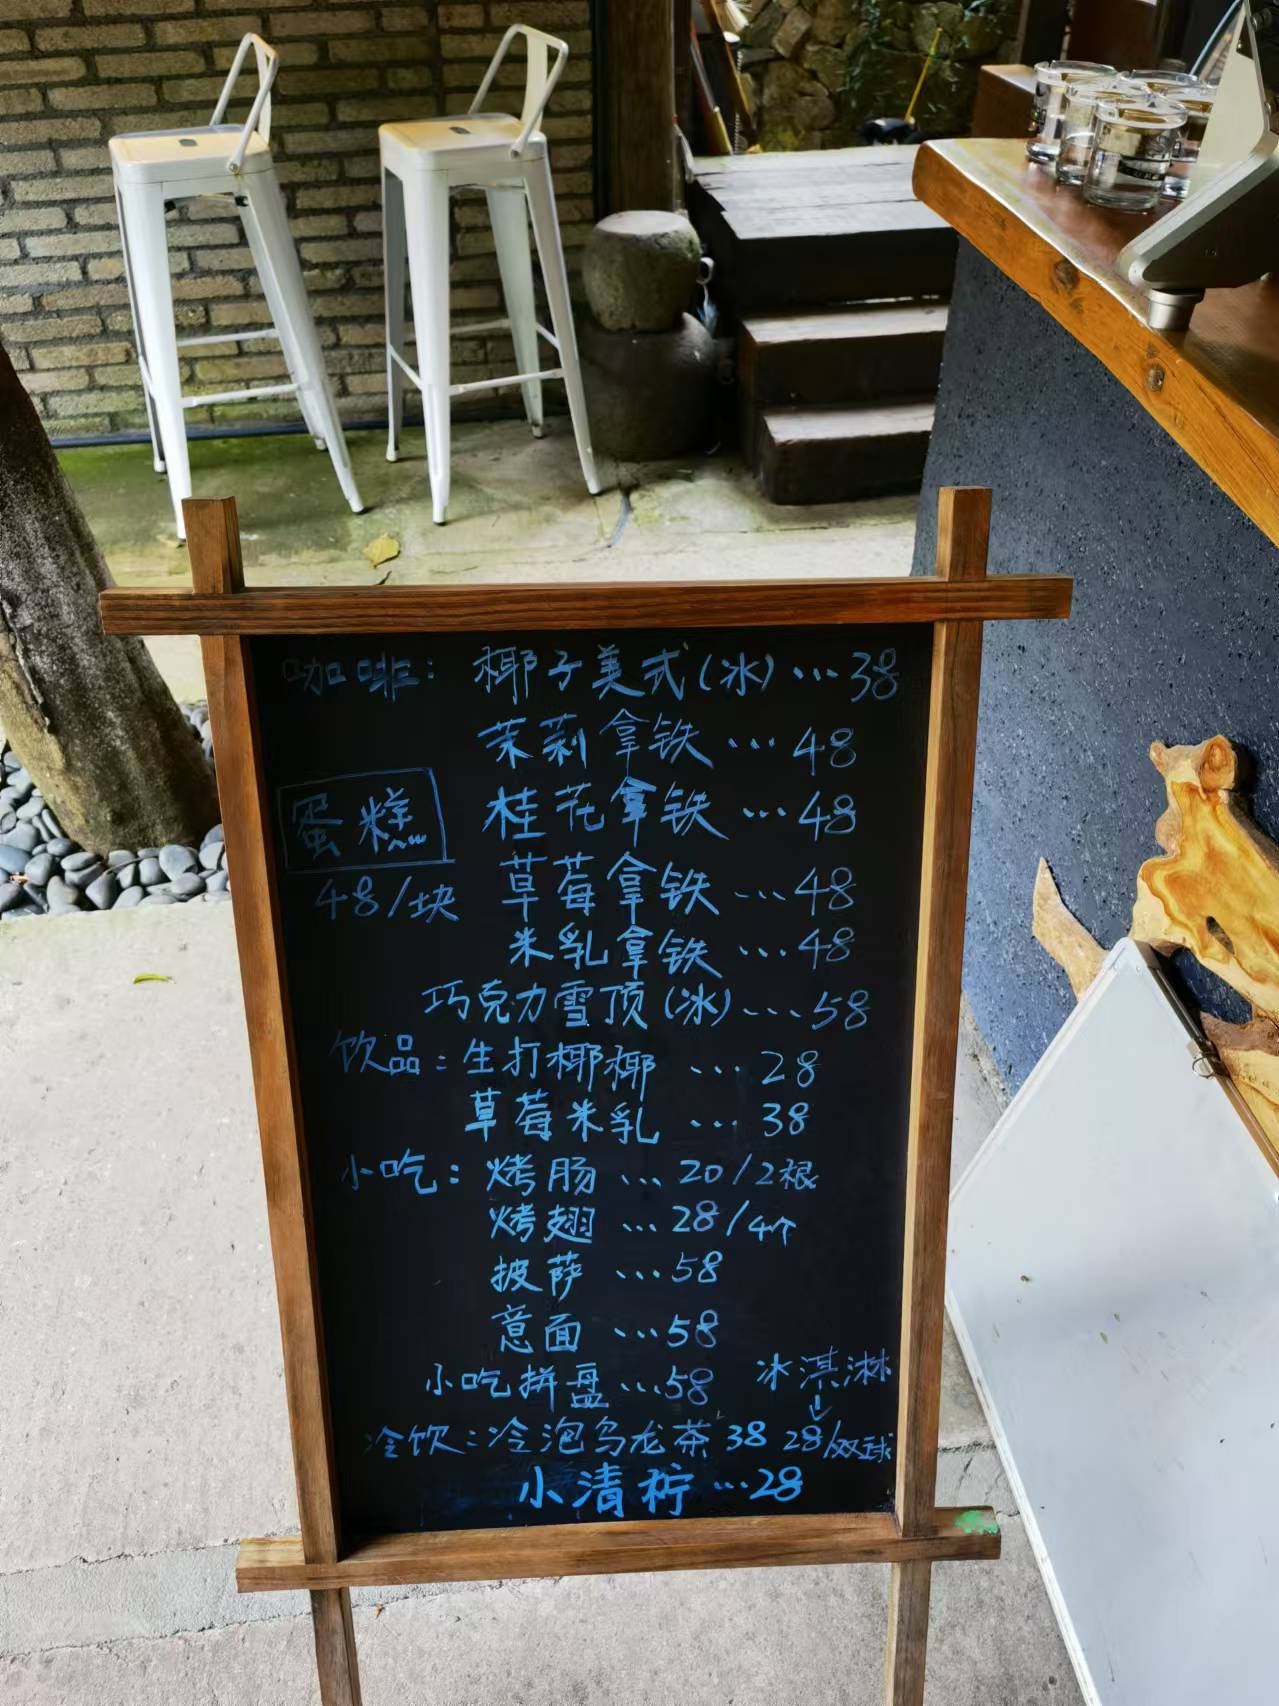 咖啡：椰子美式（冰）…38
茉莉拿铁…48
蛋糕 桂花拿铁…48
48/块 草莓拿铁…48
米乳拿铁…48
巧克力雪顶（冰）…58
饮品：生打椰椰…28
草莓米乳…38
小吃：烤肠…20/2根
烤翅…28/4个
披萨…58
意面…58
小吃拼盘…58 冰淇淋
冷饮：冷泡乌龙茶 38 28/双球
小清柠…28